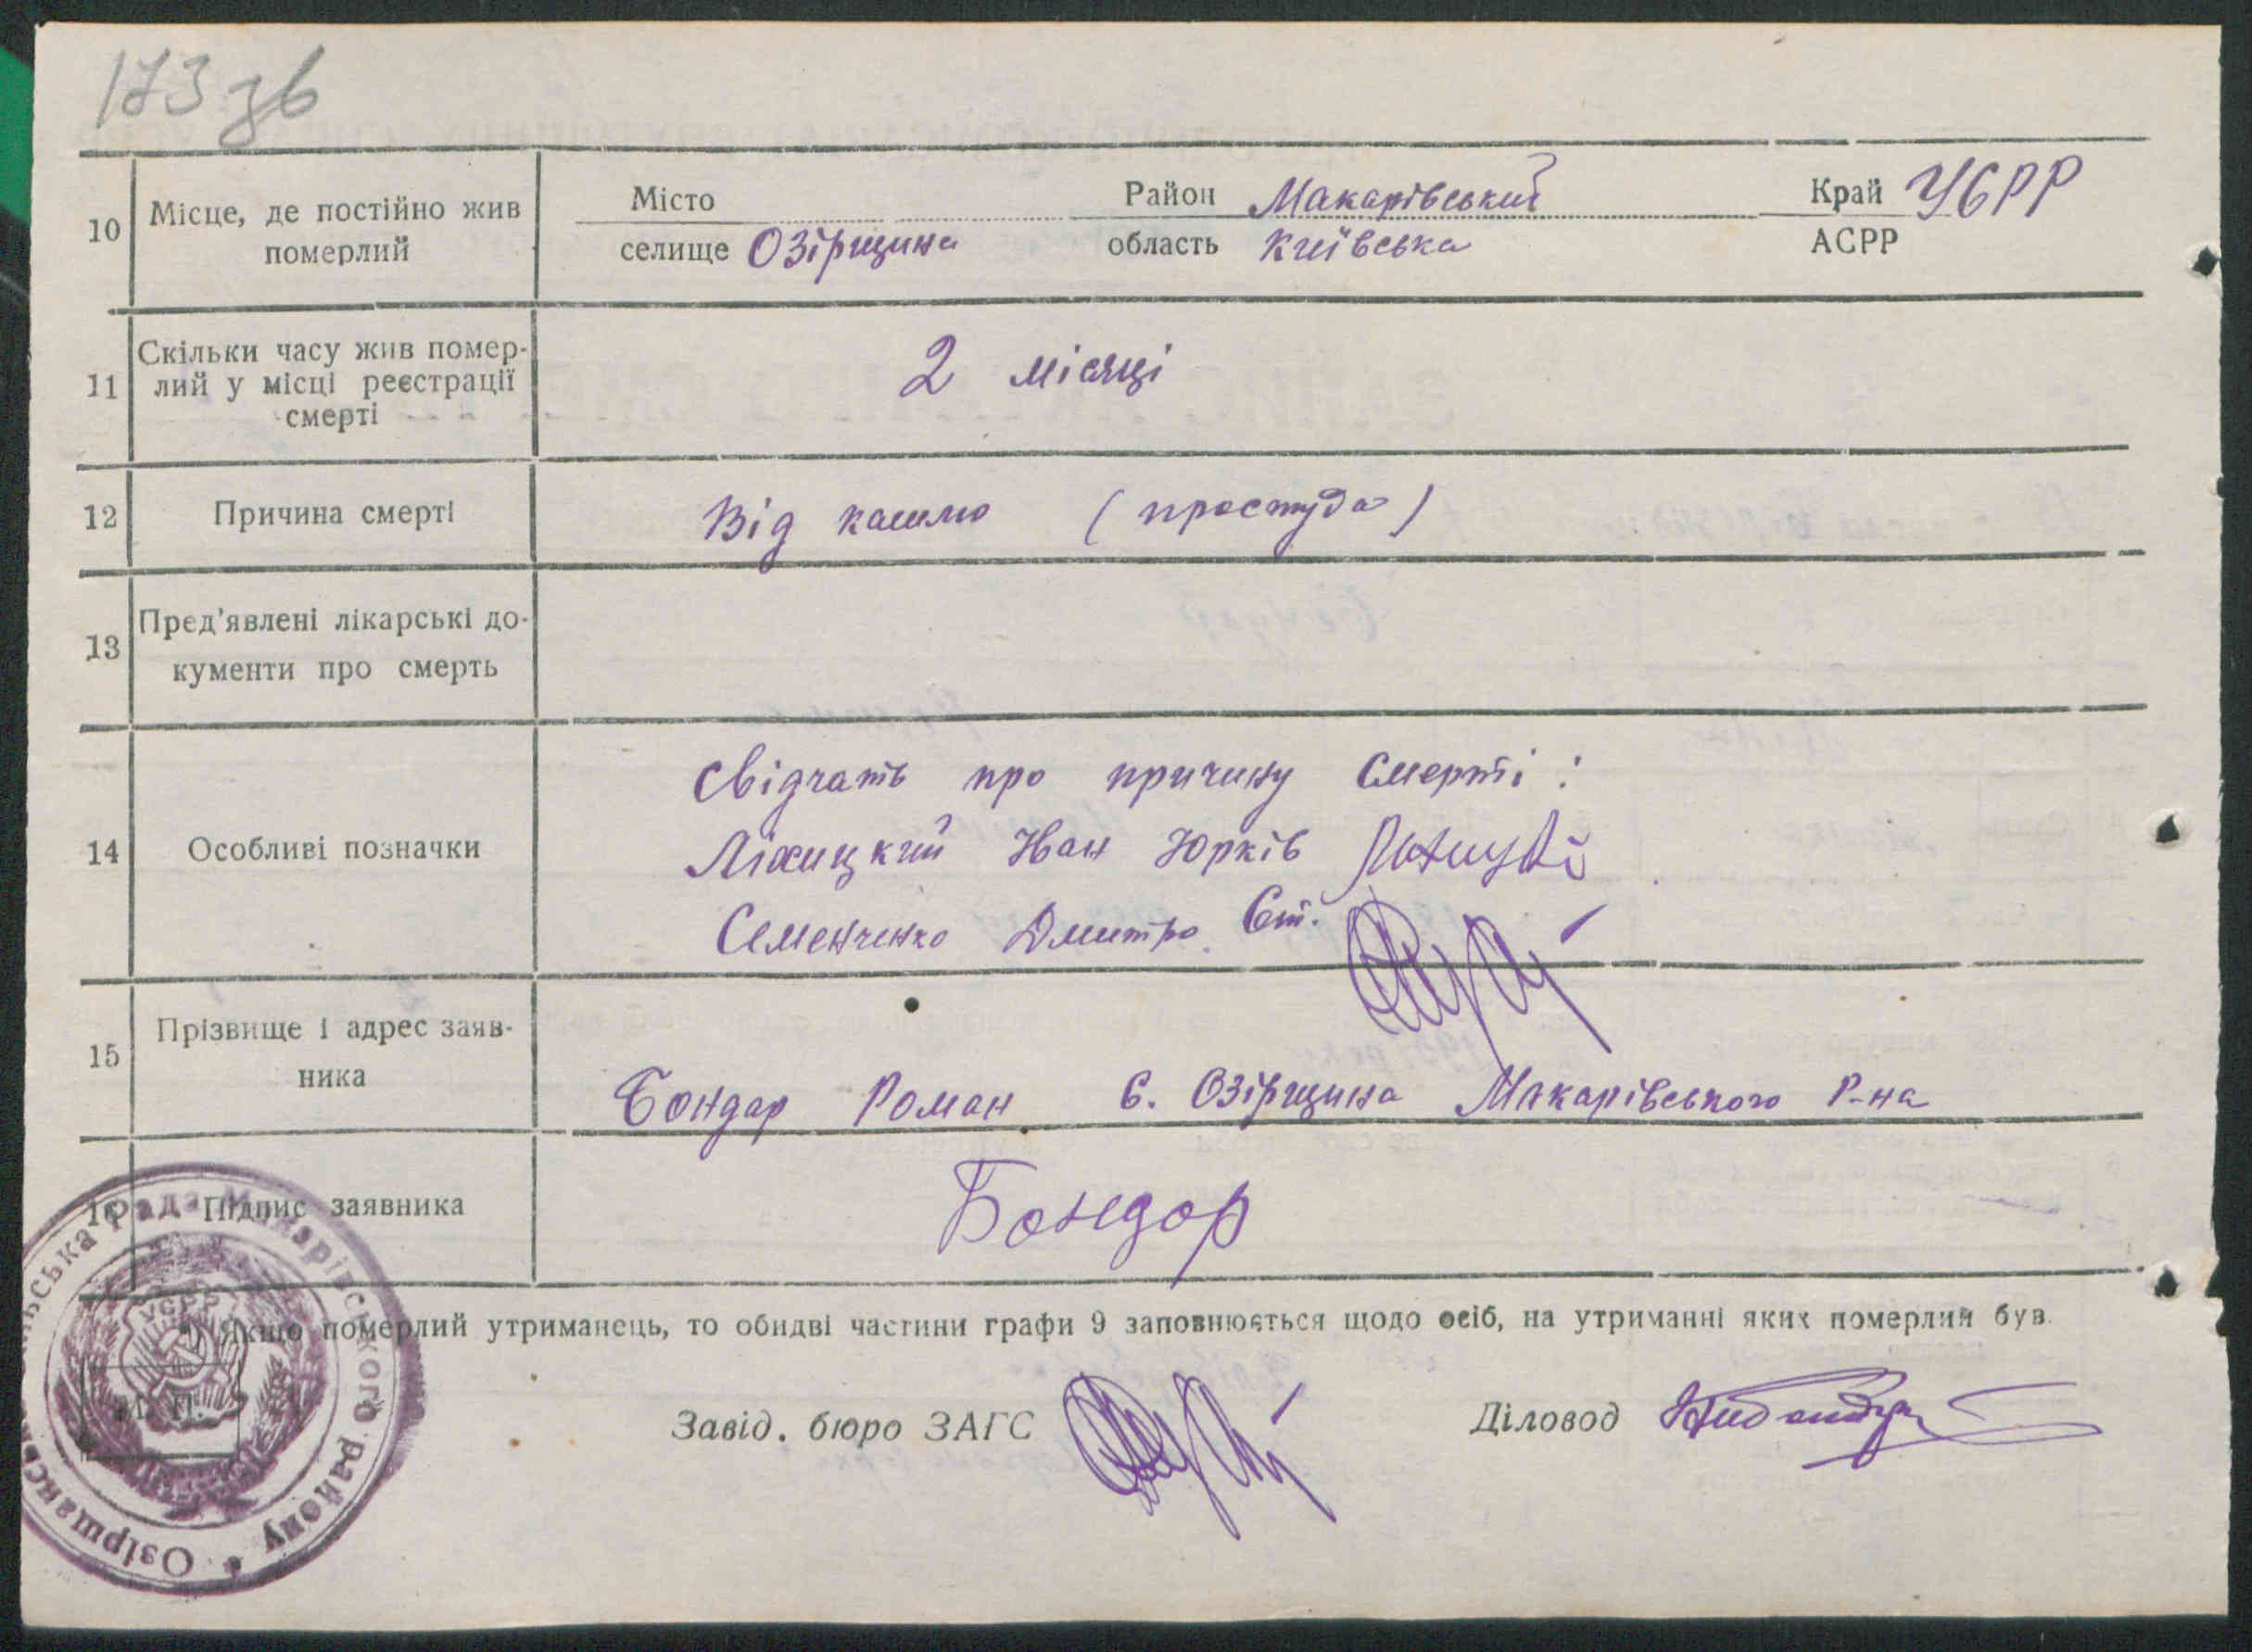 173 зв
10 Місце, де постійно жив померлий
Місто Район Макарівський Край УСРР
селище Озірщина область Київська АСРР
11 Скільки часу жив помер-
лий у місці реєстрації
смерті
2 місяці
12 Причина смерті Від кашлю (простуда)
13 Пред'явлені лікарські до-
кументи про смерть
14 Особливі позначки
Свідчать про причину смерті:
Ліхицкий Іван Юрків
Семенченко Дмитро Ст.
15 Прізвище і адрес заяв-
ника
Бондар Роман С. Озірщина Макарівського Р-на
16 Підпис заявника Бондор
*) Якщо померлий утриманець, то обидві частини графи 9 заповнюється щодо осіб, на утриманні яких померлий був.
М. П.
Завід. бюро ЗАГС Діловод
Озірщанська сільська Рада Макарівського району
УСРР